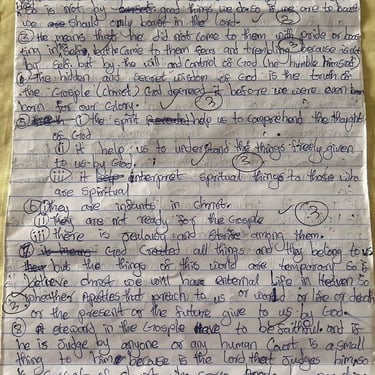 not by good things we do so if we are to boast
we should only boast in the Lord. 3
3 He means that he did not come to them with pride or boas
ting in self, but he came to them fear and trembling because is not
by self but by the will and control of God (he humble himself)
4 the hidden and secret wisdom of God is the truth of
the Grosple (christ) God decreed it before we were even
born for our Glory. 3
5 (i) the spirit help us to comprehend the thoughts
of God
(ii) it help us to understand the things freely given
to us by God. 3
(iii) it interpret spritual things to those who
are spiritual
6 (i) they are infants in Christ. 3
(ii) they are not ready for the Grosple
(iii) there is jealousy and strife among them.
7 God created all things and they belong to us
but the things of this world are temporant so if
believe christ we will have external life in Heaven so
wheather Apostles that preach to us or world or life or death
or the present or the future give to us by God.
8 A steward in the Gosple to be faithful and if
he is Judge by anyone or any human Court is a small
thing to him because is the lord that Judges him, so